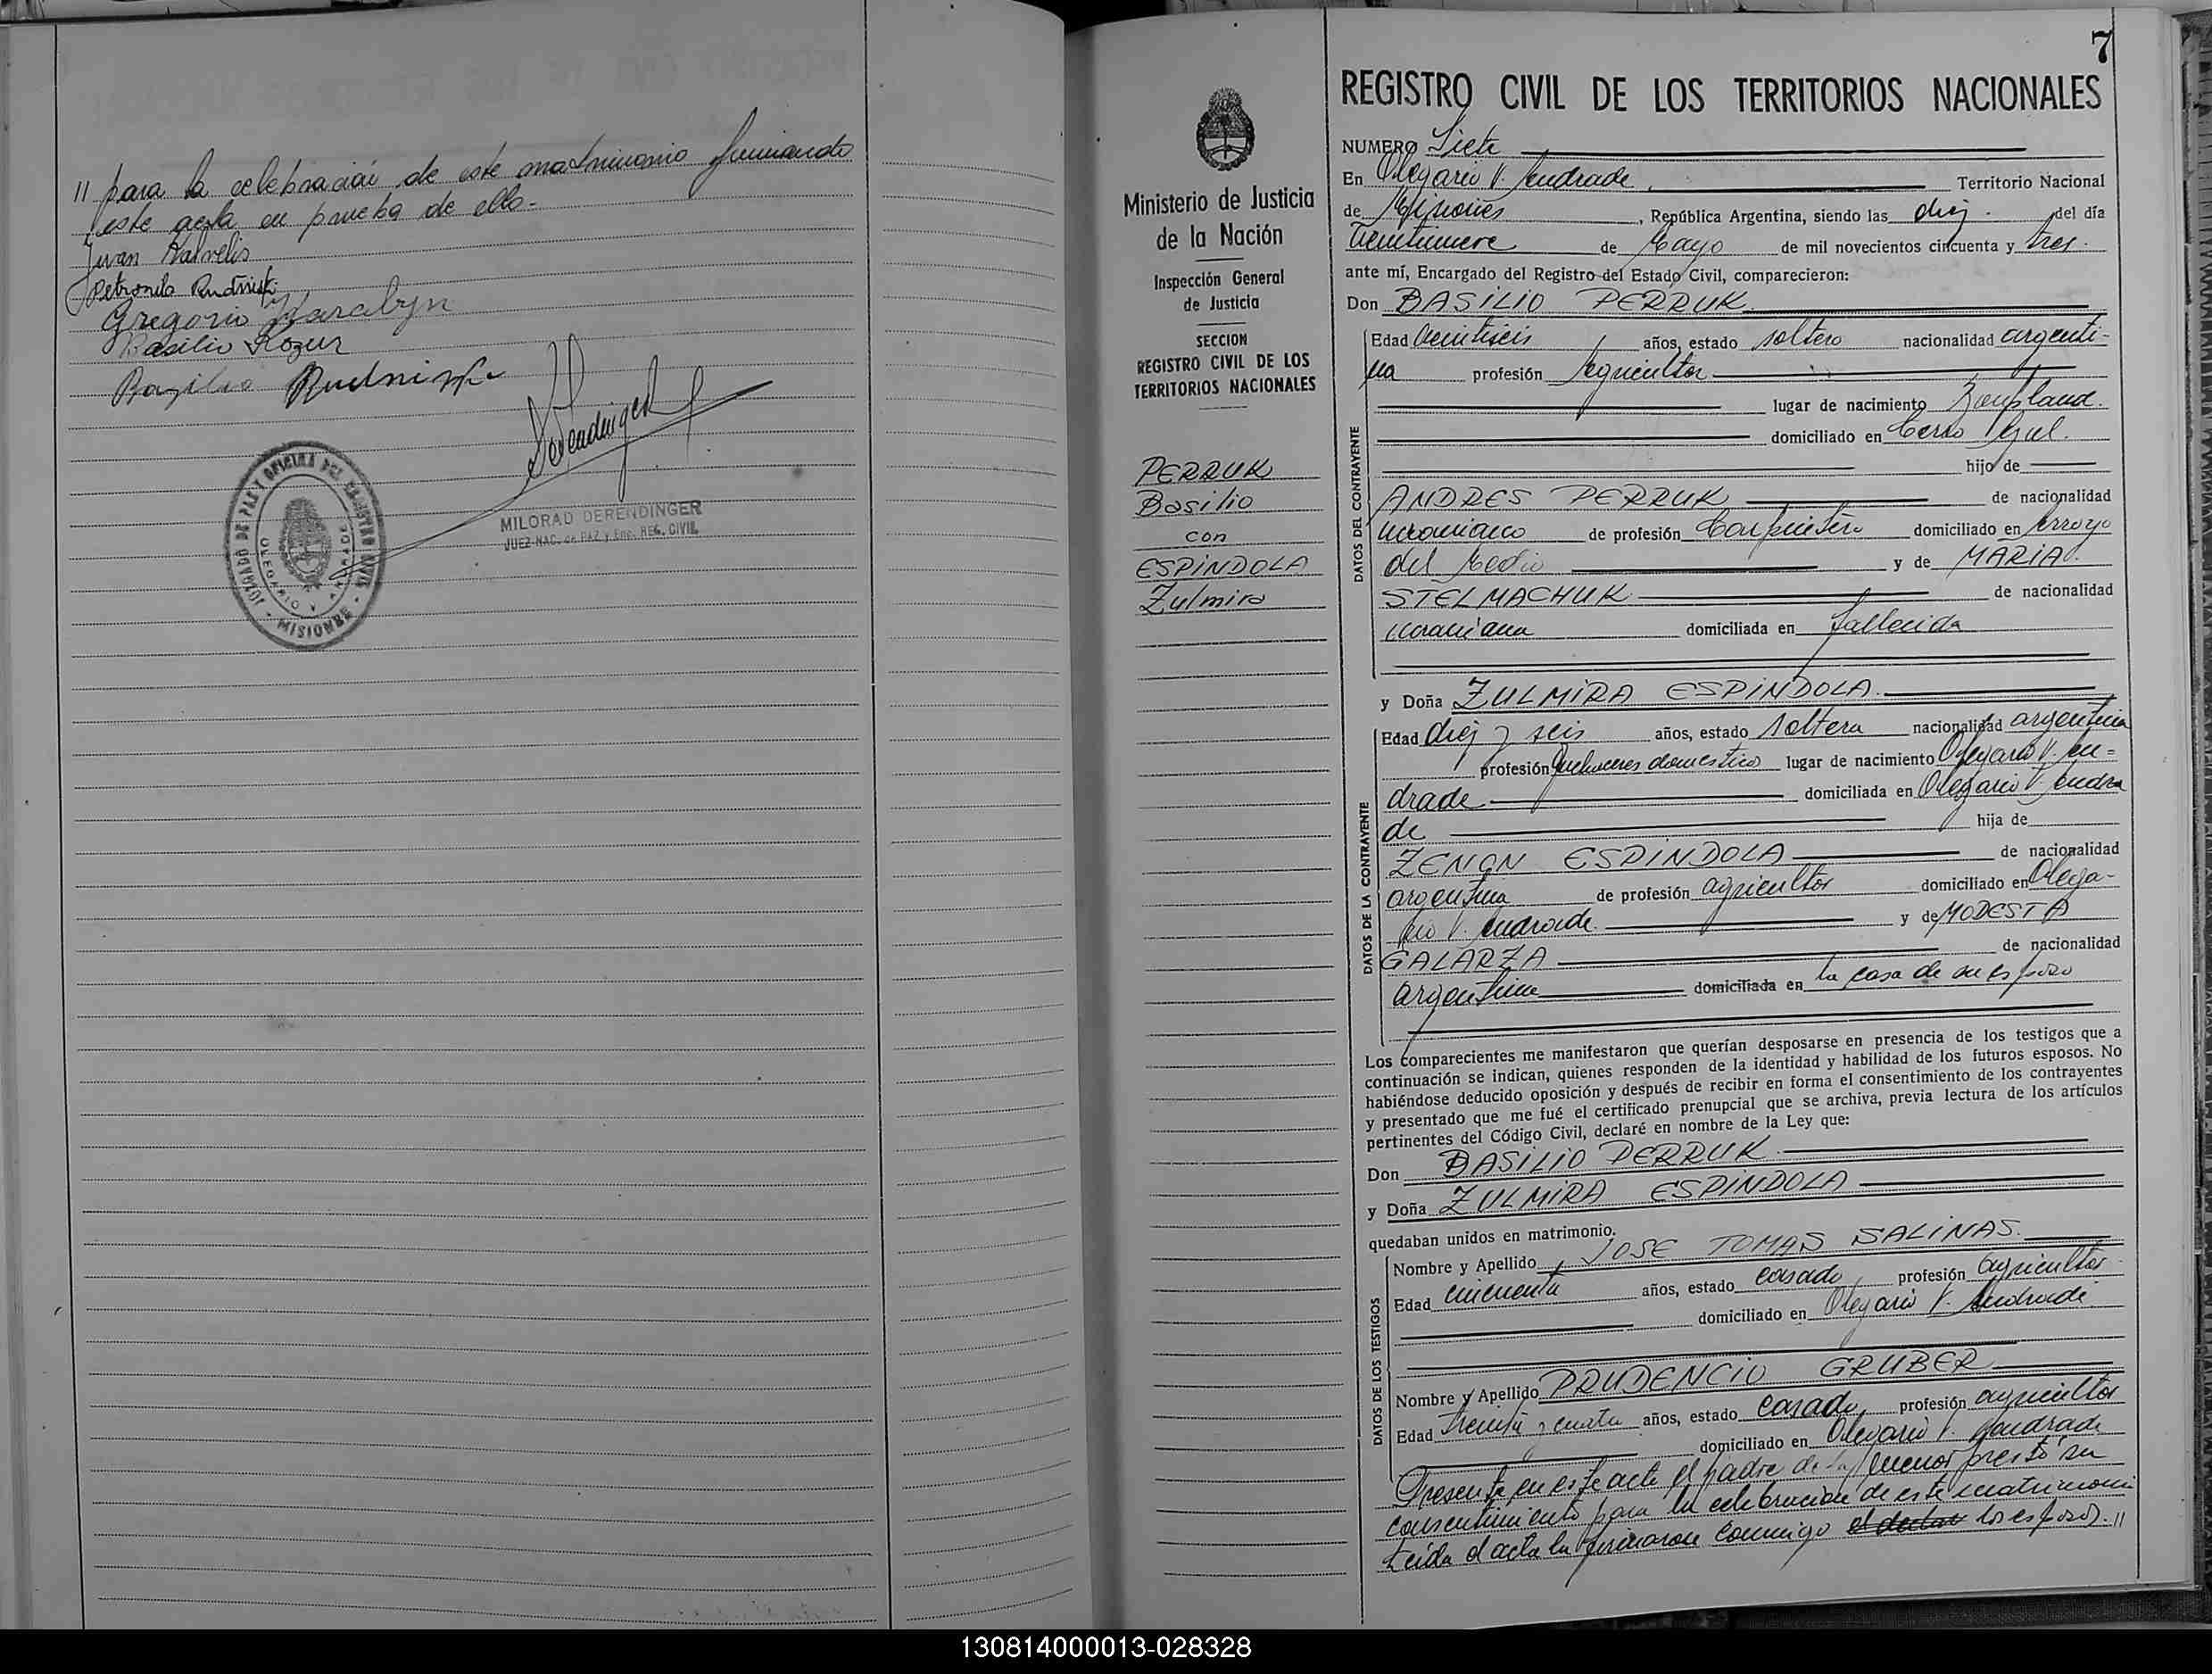 // para la celebración de este matrimonio firmando
este acta en prueba de ello.-
Juan Kalvelis
Petronila Rudniski
Gregorio Haralyn
Basilio Kozur
Bazilio
Derendinger
JUZGADO DE PAZ Y OFICINA DEL REGISTRO CIVIL
OLEGARIO V. ANDRADE
MISIONES
MILORAD DERENDINGER
JUEZ NAC. de PAZ y Enc. REG. CIVIL
Ministerio de Justicia
de la Nación
Inspección General
de Justicia
SECCION
REGISTRO CIVIL DE LOS
TERRITORIOS NACIONALES
PERRUK
Basilio
con
ESPINDOLA
Zulmira
7
REGISTRO CIVIL DE LOS TERRITORIOS NACIONALES
NUMERO Siete
En Olegario V. Andrade. Territorio Nacional
de Misiones, República Argentina, siendo las diez. del día
veintinueve de Mayo de mil novecientos cincuenta y tres.
ante mí, Encargado del Registro del Estado Civil, comparecieron:
Don BASILIO PERRUK.
DATOS DEL CONTRAYENTE
Edad veintiseis años, estado soltero nacionalidad argenti-
na profesión Agricultor
lugar de nacimiento Bonpland.
domiciliado en Cerro Azul.
hijo de
ANDRES PERRUK de nacionalidad
ucraniano de profesión Carpintero domiciliado en Arroyo
del Medio y de MARIA
STELMACHUK de nacionalidad
ucraniana domiciliada en fallecida
y Doña ZULMIRA ESPINDOLA.
DATOS DE LA CONTRAYENTE
Edad diez y seis años, estado soltera nacionalidad argentina
profesión quehaceres domestico lugar de nacimiento Olegario V. An=
drade domiciliada en Olegario V. Andra
de hija de
ZENON ESPINDOLA de nacionalidad
argentina de profesión agricultor domiciliado en Olega-
rio V. Andrade. y de MODESTA
GALARZA de nacionalidad
argentina domiciliada en la casa de su esposo
Los comparecientes me manifestaron que querían desposarse en presencia de los testigos que a
continuación se indican, quienes responden de la identidad y habilidad de los futuros esposos. No
habiéndose deducido oposición y después de recibir en forma el consentimiento de los contrayentes
y presentado que me fué el certificado prenupcial que se archiva, previa lectura de los artículos
pertinentes del Código Civil, declaré en nombre de la Ley que:
Don BASILIO PERRUK.
y Doña ZULMIRA ESPINDOLA
quedaban unidos en matrimonio.
DATOS DE LOS TESTIGOS
Nombre y Apellido JOSE TOMAS SALINAS.
Edad cincuenta años, estado casado profesión agricultor
domiciliado en Olegario V. Andrade.
Nombre y Apellido PRUDENCIO GRUBER
Edad treinta y cuatro años, estado casado profesión agricultor
domiciliado en Olegario V. Andrade
Presente en este acto el padre de la menor presto su
consentimiento para la celebracion de este matrimoni
Leida el acta la firmaron conmigo los esposos. //
130814000013-028328